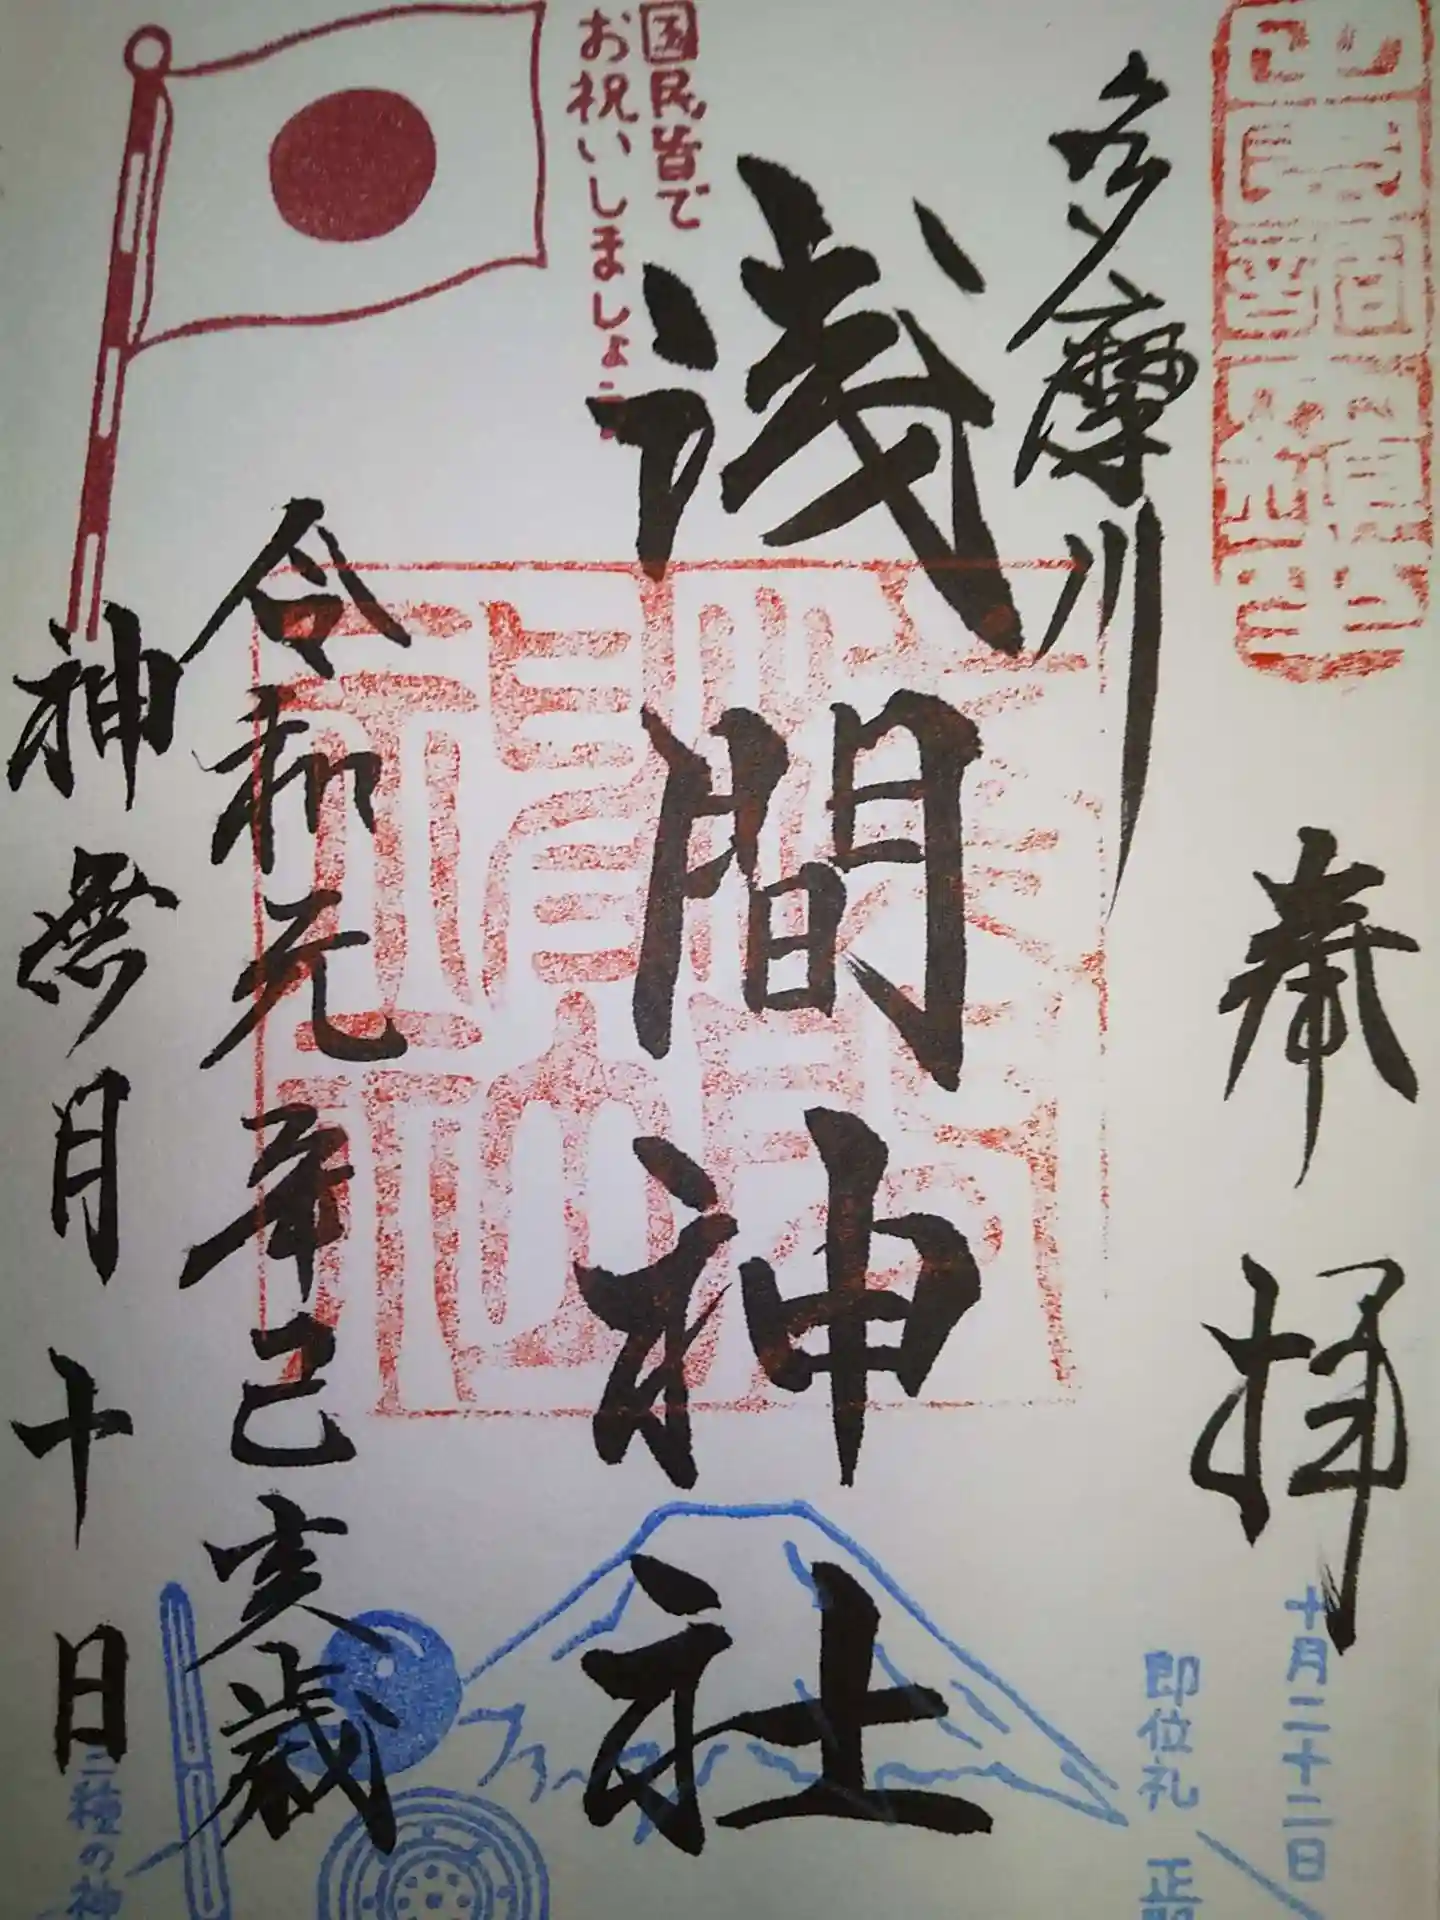 奉拝
十月二十二日
即位礼 正
多摩川
浅間神社
国民皆で
お祝いしましょう
令和元年己亥歳
神無月十日
三種の神